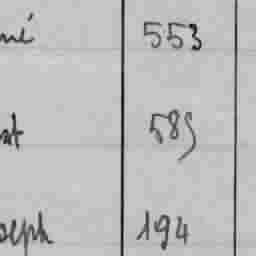 né 553
st 585
oseph 194